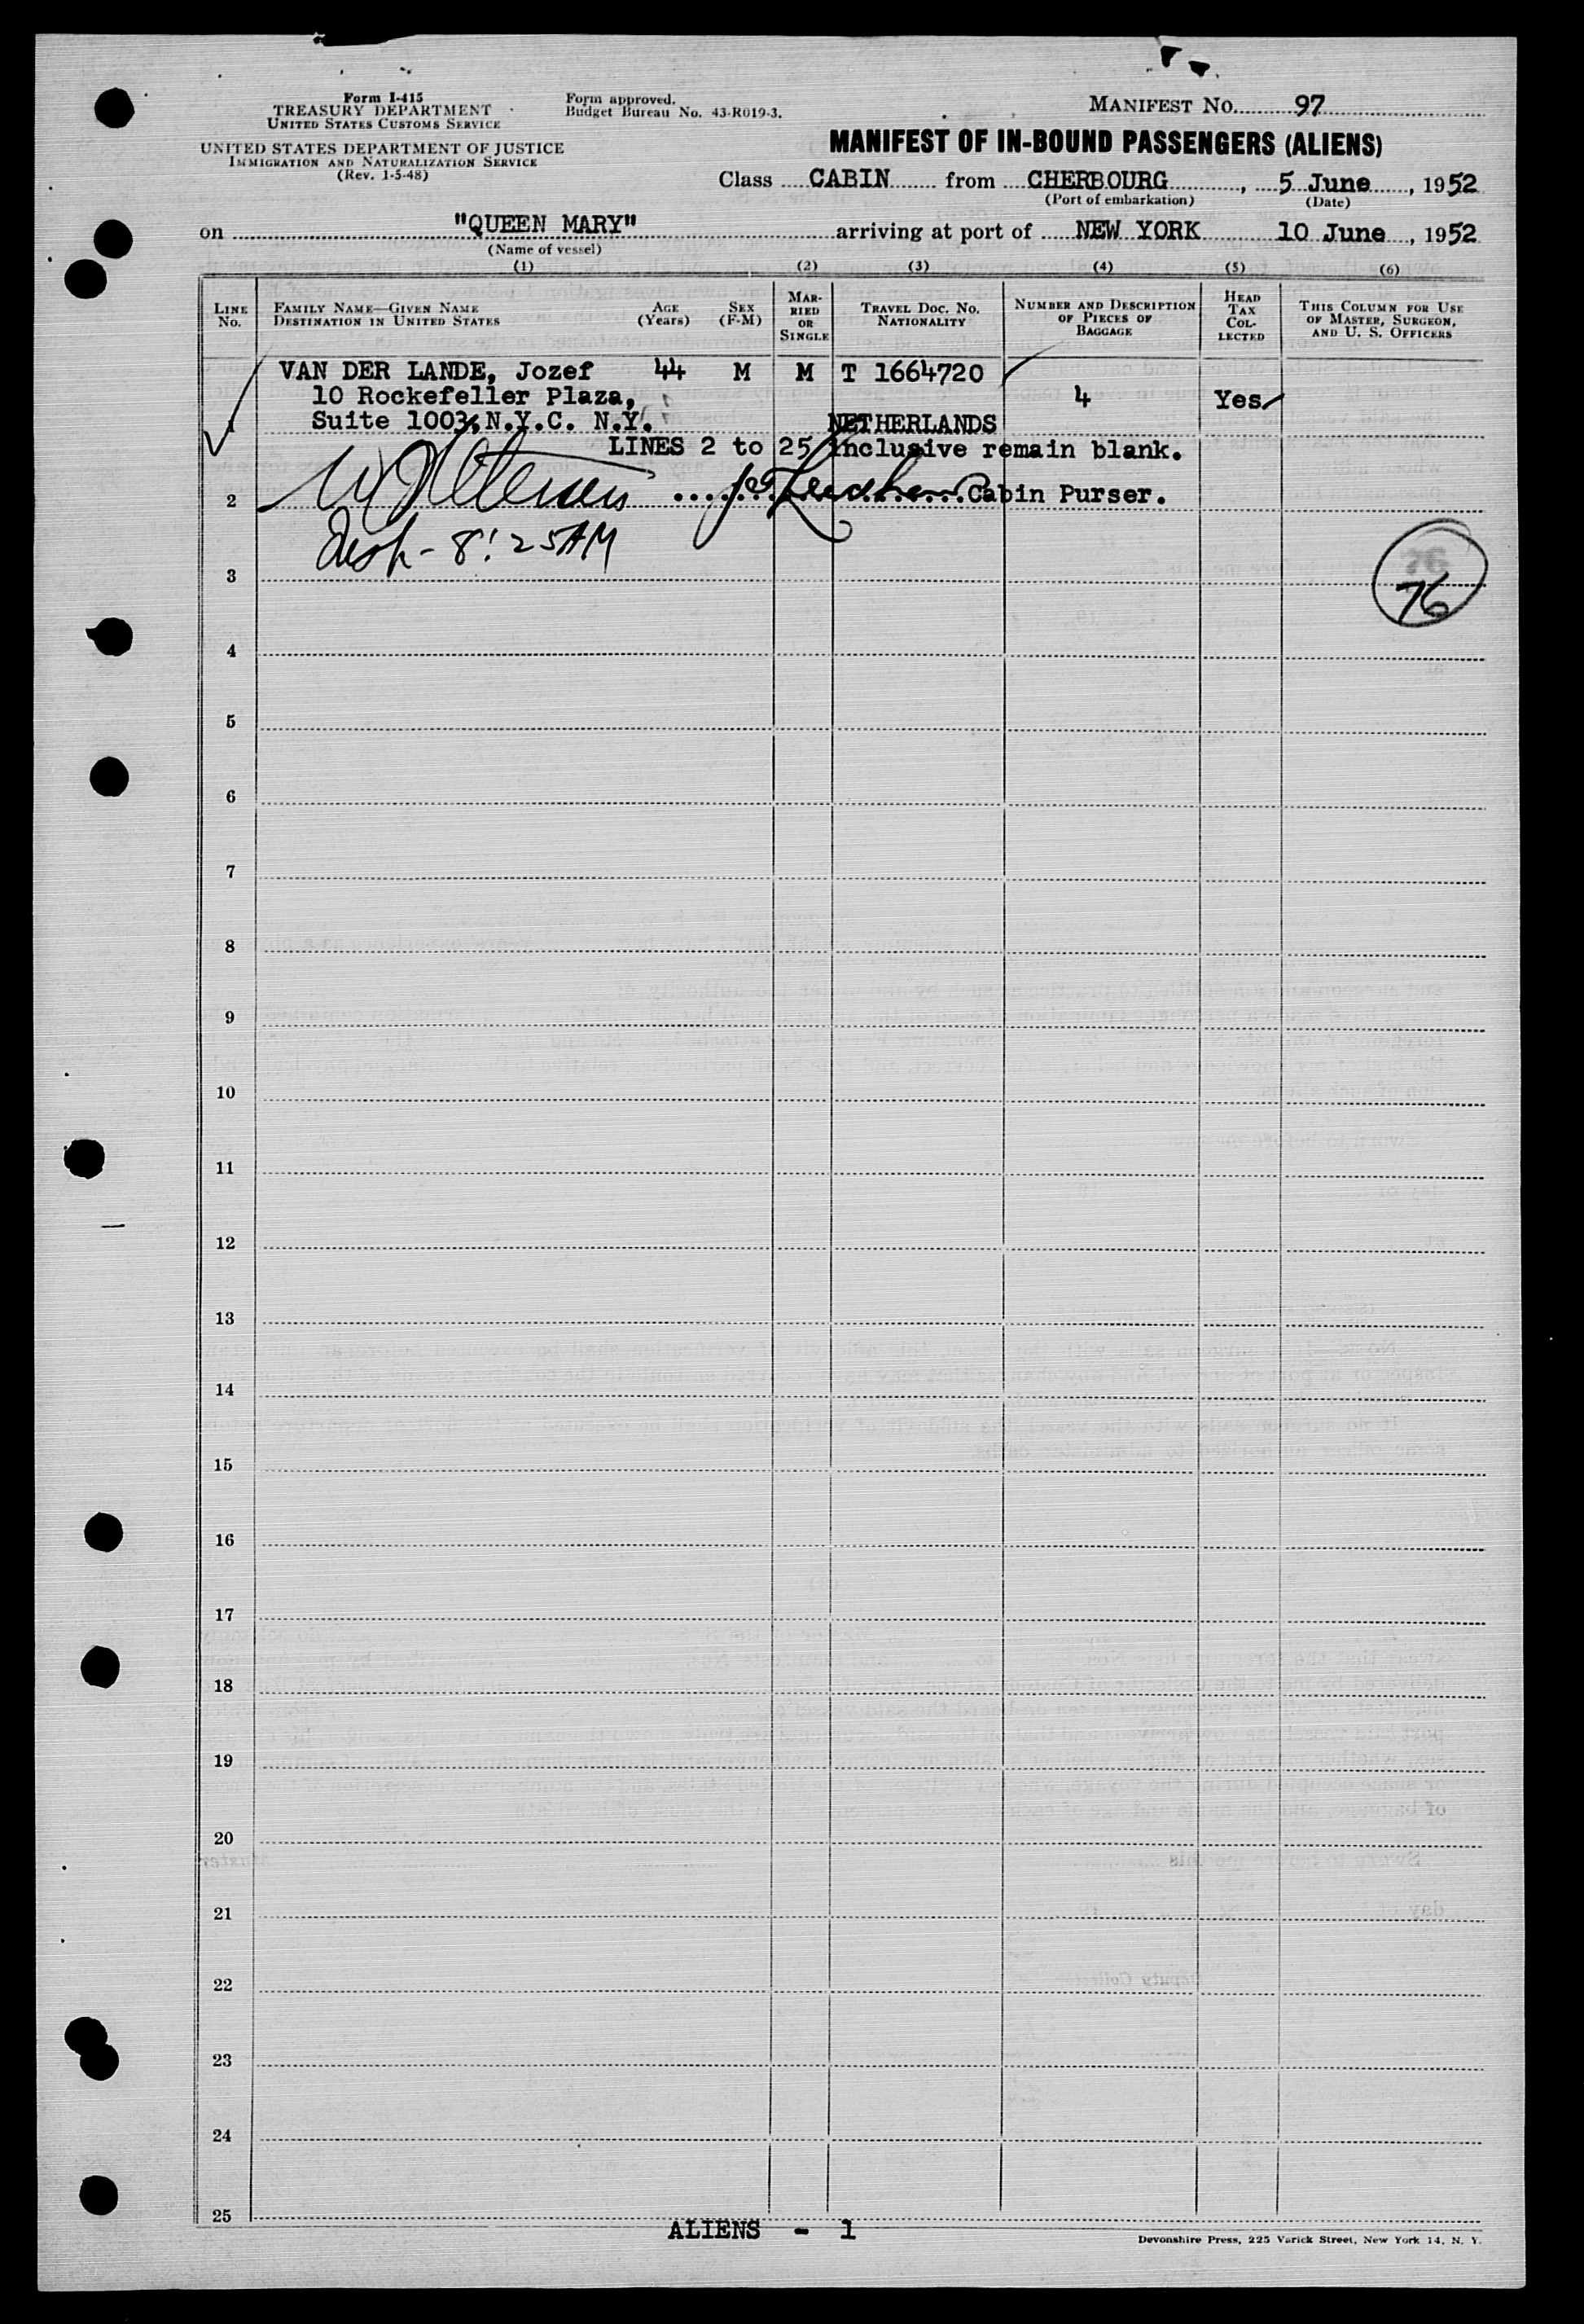 Form I-415
TREASURY DEPARTMENT
UNITED STATES CUSTOMS SERVICE
UNITED STATES DEPARTMENT OF JUSTICE
IMMIGRATION AND NATURALIZATION SERVICE
(Rev. 1-5-48)
Form approved.
Budget Bureau No. 43-R019-3.
MANIFEST NO. 97
MANIFEST OF IN-BOUND PASSENGERS (ALIENS)
Class CABIN from CHERBOURG, 5 June, 1952
(Port of embarkation) (Date)
on "QUEEN MARY" arriving at port of NEW YORK 10 June, 1952
(Name of vessel)
(1) (2) (3) (4) (5) (6)
LINE No.
FAMILY NAME—GIVEN NAME
DESTINATION IN UNITED STATES
AGE (Years)
SEX (F-M)
MARRIED OR SINGLE
TRAVEL DOC. NO. NATIONALITY
NUMBER AND DESCRIPTION OF PIECES OF BAGGAGE
HEAD TAX COLLECTED
THIS COLUMN FOR USE OF MASTER, SURGEON, AND U. S. OFFICERS
VAN DER LANDE, Jozef 44 M M T 1664720
10 Rockefeller Plaza, 4 Yes
1 Suite 1003, N.Y.C. N.Y. NETHERLANDS
LINES 2 to 25 inclusive remain blank.
2 Cabin Purser.
8:25 AM
3
76
4
5
6
7
8
9
10
11
12
13
14
15
16
17
18
19
20
21
22
23
24
25
ALIENS - 1
Devonshire Press, 225 Varick Street, New York 14, N. Y.